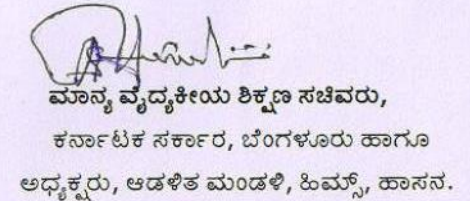 ಮಾನ್ಯ ವೈದ್ಯಕೀಯ ಶಿಕ್ಷಣ ಸಚಿವರು,
ಕರ್ನಾಟಕ ಸರ್ಕಾರ, ಬೆಂಗಳೂರು ಹಾಗೂ
ಅಧ್ಯಕ್ಷರು, ಆಡಳಿತ ಮಂಡಳಿ, ಹಿಮ್ಸ್, ಹಾಸನ.